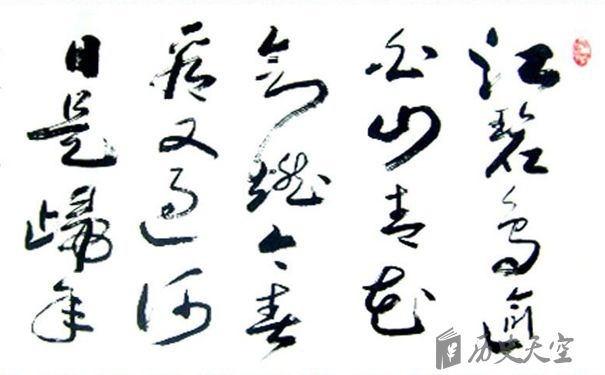 江碧鳥逾
白山青花
欲燃今春
看又過何
日是歸年
历史天空